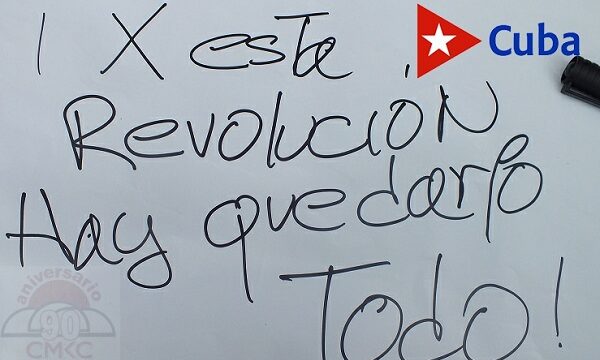 ¡ X esta
Cuba
Revolución
Hay que darlo
Todo!
aniversario
90
CMKC